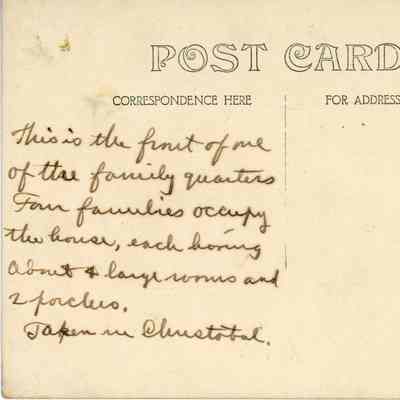 POST CARD
CORRESPONDENCE HERE
FOR ADDRESS
This is the front of one
of the family quarters
Four families occupy
the house, each having
about 4 large rooms and
2 porches.
Taken in Christobal.